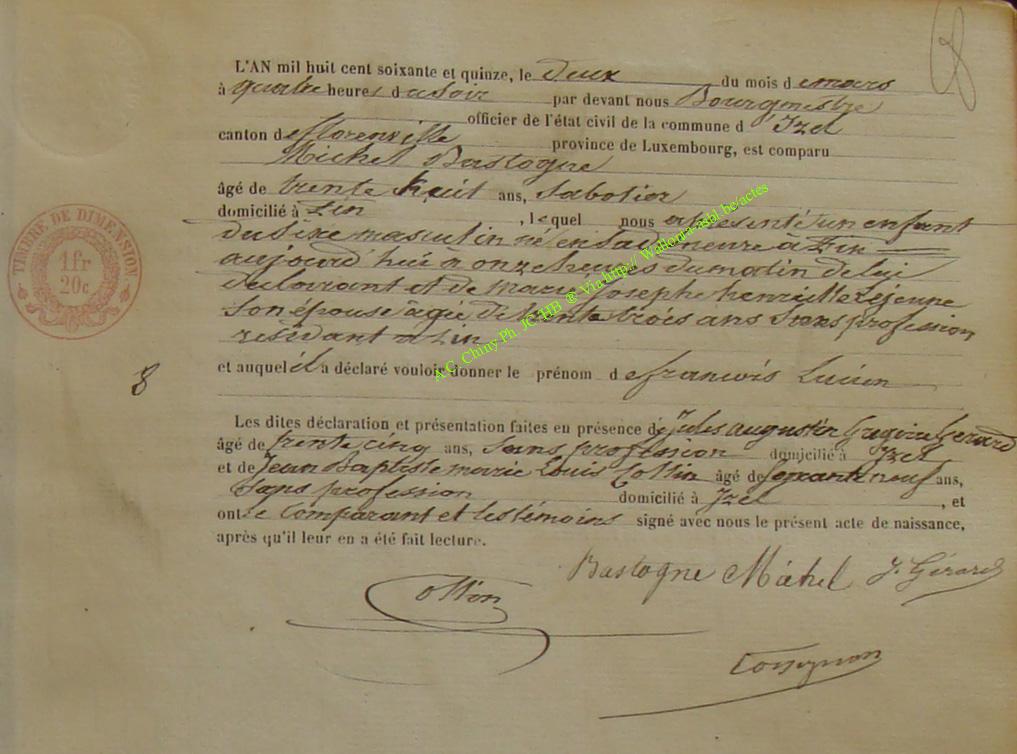 L'AN mil huit cent soixante et quinze, le deux du mois de mars
à quatre heures du soir par devant nous Bourgmestre
officier de l'état civil de la commune d'Izel
canton de florenville province de Luxembourg, est comparu
Michel Bastogne
âgé de trente huit ans, Sabotier
domicilié à Pin, lequel nous a présenté un enfant
du Sexe masculin né en sa demeure à Pin
aujourd'hui à onze heures du matin de lui
déclarant et de Marie Josephe henriette Lejeune
Son épouse âgée de trente trois ans Sans profession
résidant à Pin
et auquel il a déclaré vouloir donner le prénom de francois Lucien
8
Les dites déclaration et présentation faites en présence de Jules augustin Grégoire Gerard
âgé de trente cinq ans, Sans profession domicilié à Izel
et de Jean Baptiste marie Louis Collin âgé de Soixante neuf ans,
Sans profession domicilié à Izel, et
ont le Comparant et les témoins signé avec nous le présent acte de naissance,
après qu'il leur en a été fait lecture.
Bastogne Michel J. Gérard
TIMBRE DE DIMENSION
1 fr
20c
A.C. Chiny Ph. JC-HB @ Via http:// Wallonia-asbl.be/actes